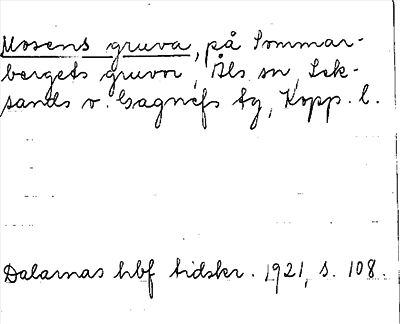 Mosens gruva, på Sommar-
bergets gruvor, Åls sn, Lek-
sands o. Gagnefs tg, Kopp. l.
Dalarnas hbf tidskr. 1921, s. 108.